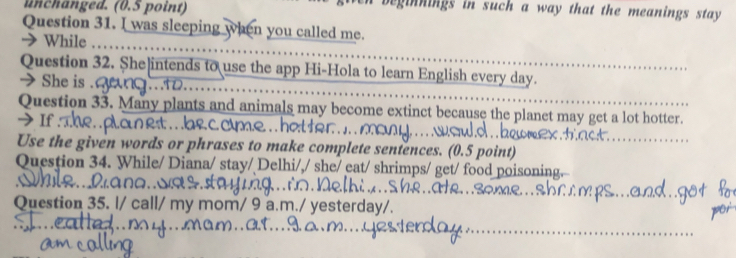 unchanged. (0.5 point) beginnings in such a way that the meanings stay
Question 31. I was sleeping when you called me.
→ While ........................................
Question 32. She intends to use the app Hi-Hola to learn English every day.
→ She is going to ........................................
Question 33. Many plants and animals may become extinct because the planet may get a lot hotter.
→ If the planet become hotter, many would become extinct
Use the given words or phrases to make complete sentences. (0.5 point)
Question 34. While/ Diana/ stay/ Delhi/,/ she/ eat/ shrimps/ get/ food poisoning.
While Diana was staying in Delhi, she ate some shrimps and got
Question 35. I/ call/ my mom/ 9 a.m./ yesterday/.
I my mom at 9 a.m yesterday
am calling